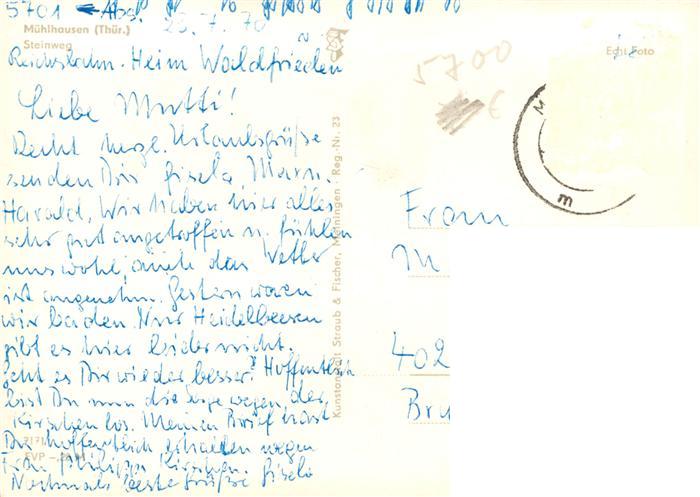 5701 Abs. 23.7.70
Mühlhausen (Thür.)
Steinweg
Reichsbahn-Heim Waldfrieden
Liebe Mutti!
Recht herzl. Urlaubsgrüße
senden Dir Gisela,
Harald, Wir haben hier alles
sehr gut angetroffen u. fühlen
uns wohl, auch das Wetter
ist angenehm. Gestern waren
wir baden. Nur Heidelbeeren
gibt es hier leider nicht.
Geht es Dir wieder besser? Hoffentlich
bist Du nun die Sorge wegen der
Kirschen los. Meinen Brief hast
Du hoffentlich erhalten wegen
Frau Philipp Kirschen.
Nochmals beste Grüße Gisela
EVP
Kunstanstalt Straub & Fischer, Meiningen · Reg.-Nr. 23
5700
€
Echt Foto
M
m
Frau
M
402
Bru